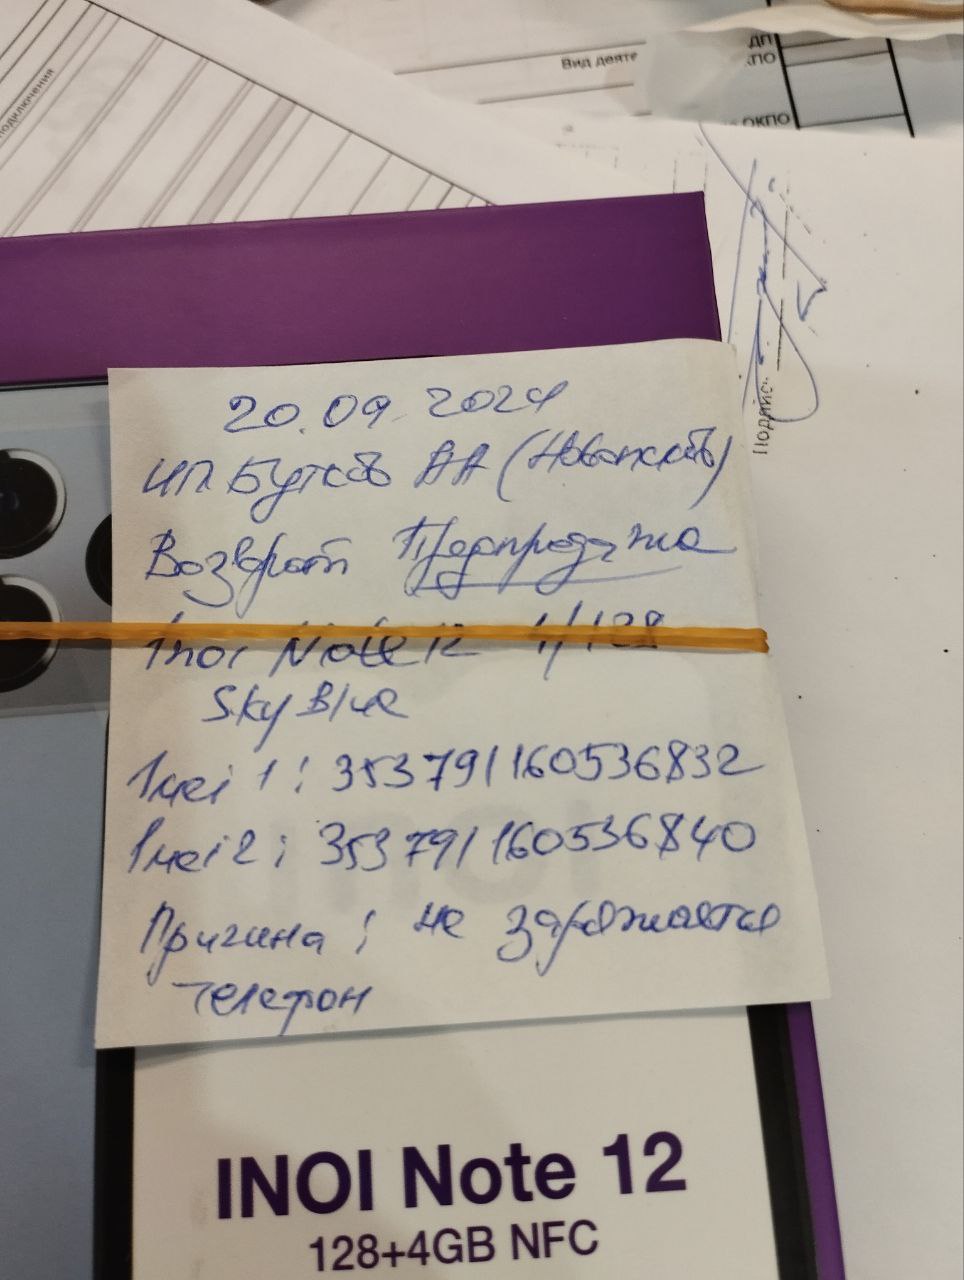 подключения
Вид деяте
ДП
КПО
ОКПО
Подпис
20.09.2024
ИП Бутков АА (
Возврат Предпродажа
Inoi Note 12 4/128
Sky Blue
Imei 1: 353791160536832
Imei 2: 353791160536840
Причина: не заряжается
телефон
INOI Note 12
128+4GB NFC